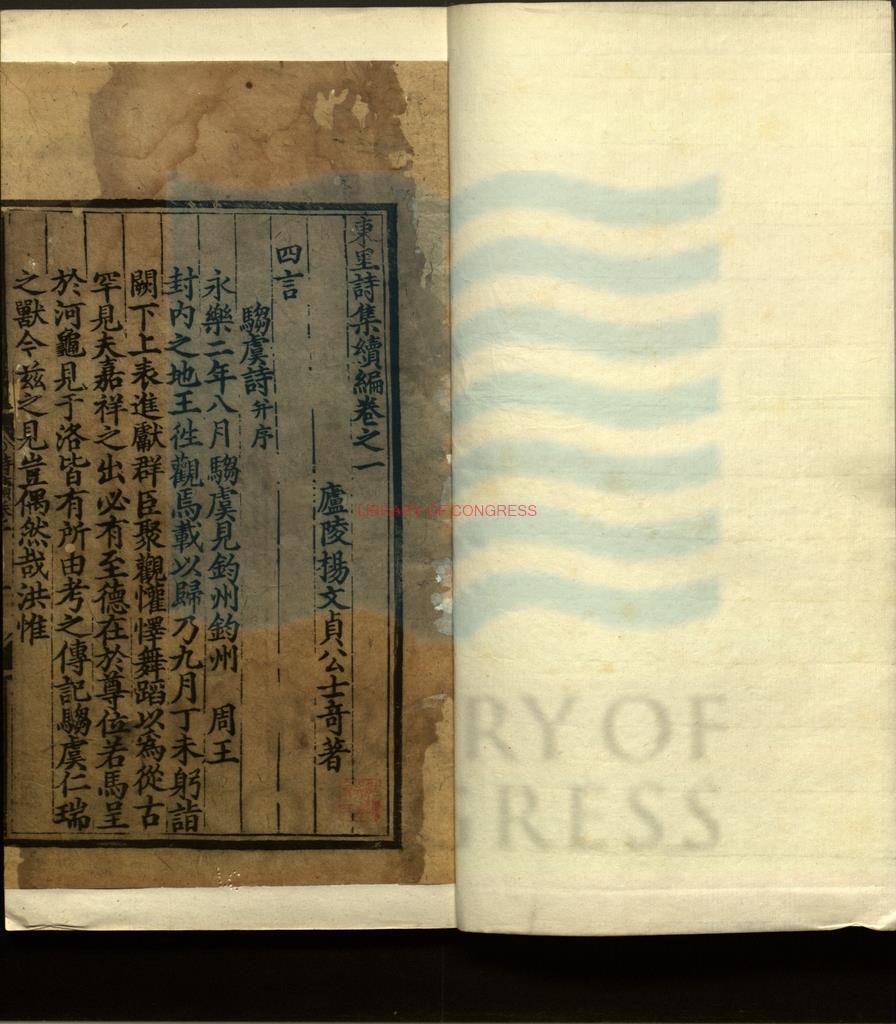 東里詩集續編卷之一
廬陵楊文貞公士奇著
四言
騶虞詩并序
永樂二年八月騶虞見鈞州鈞州 周王
封内之地王徃觀焉載以歸乃九月丁未躬詣
闕下上表進獻群臣聚觀懽懌舞蹈以為從古
罕見夫嘉祥之出必有至德在於尊位若馬呈
於河龜見于洛皆有所由考之傳記騶虞仁瑞
之獸今兹之見豈偶然哉洪惟
LIBRARY OF CONGRESS
RY OF
GRESS